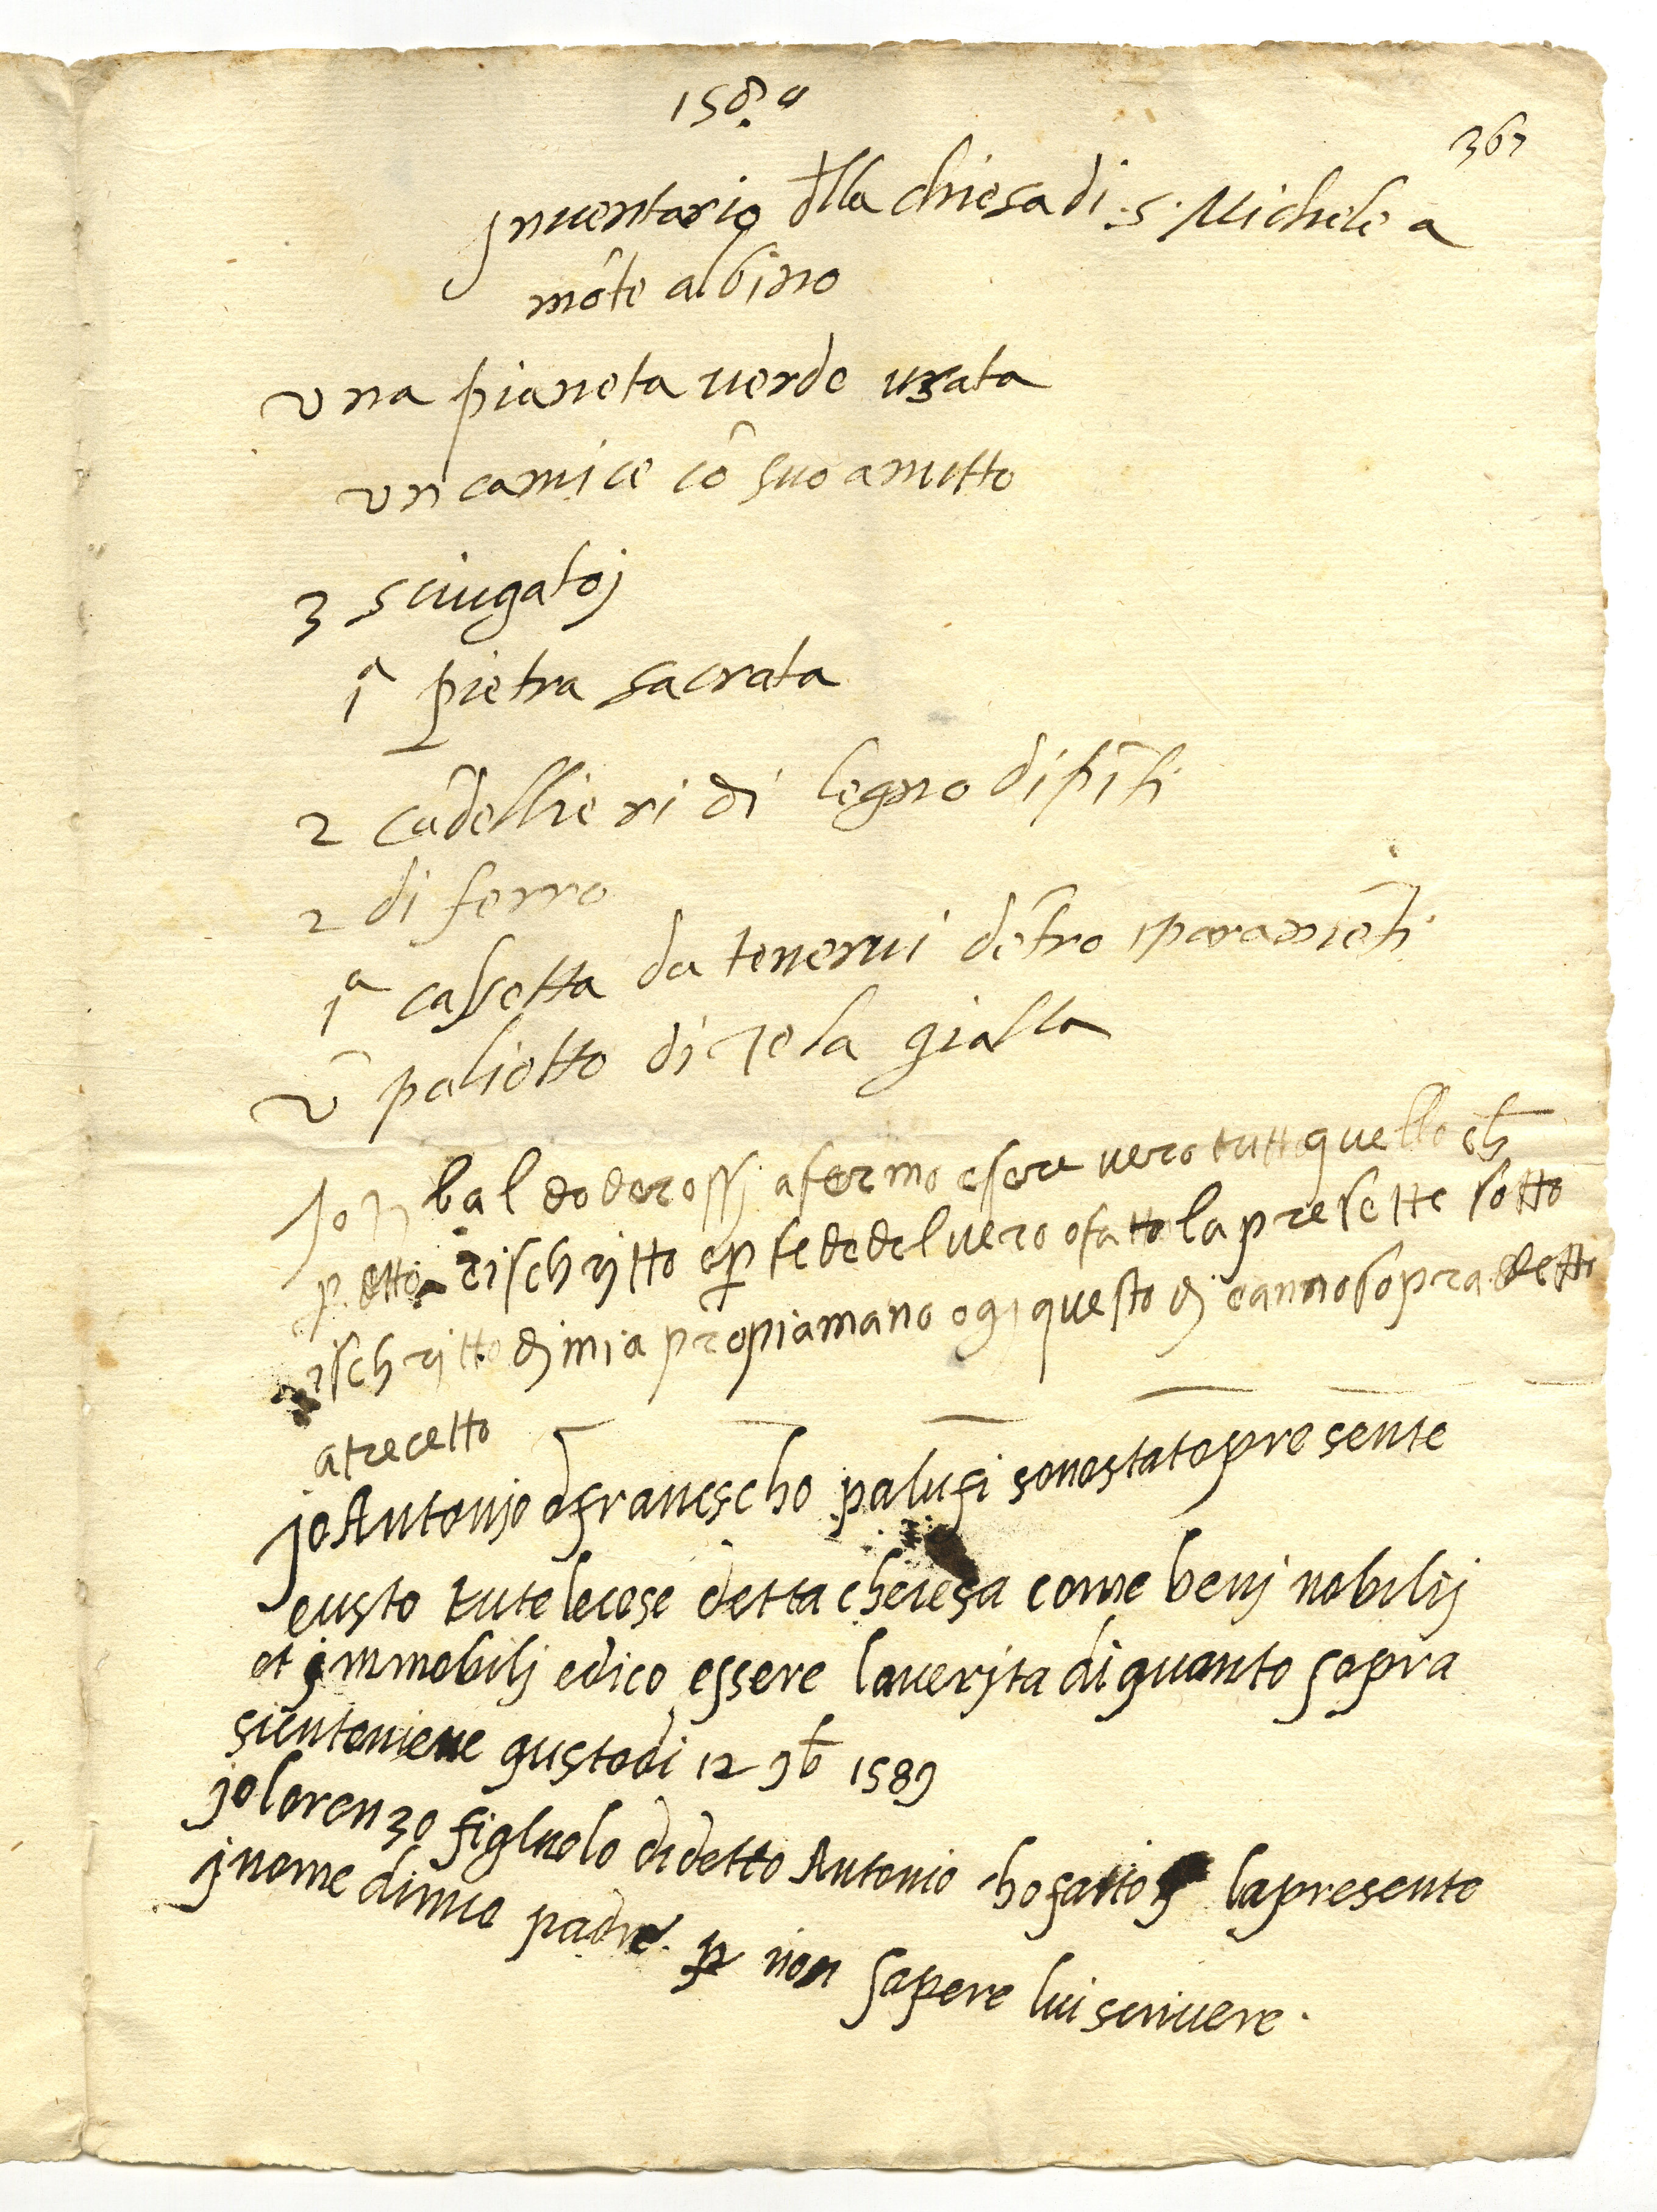 158.9
367
jnuentario d̄lla chiesa di .S. Michele a
mōte albino
vna pianeta uerde usata
vn camice cō suo amitto
3 sciugatoj
1ª pietra sacrata
2 cādellieri di legno dipīti
2 di ferro
1ª cassetta da tenerui dētro i paramēti
v̄ paliotto di tela gialla
Jo baldo de rossj afermo esere uero tutto quello ch̄
detto ischritto e per fede del uero o fatto la presette sotto
ischritto dj mia propia mano ogi questo dj e anno sopra detto
jo Antonjo d franescho palufi sono stato presente
e usto tute le cose detta cheiesa come benj mobilij
et jmmobilj e dico essere la uerjta di quanto sopra
si contiene questo di 12 9b 1589
jo lorenzo figluolo di detto Antonio ho fatto la presente
j nome di mio padre p non sapere lui scriuere.